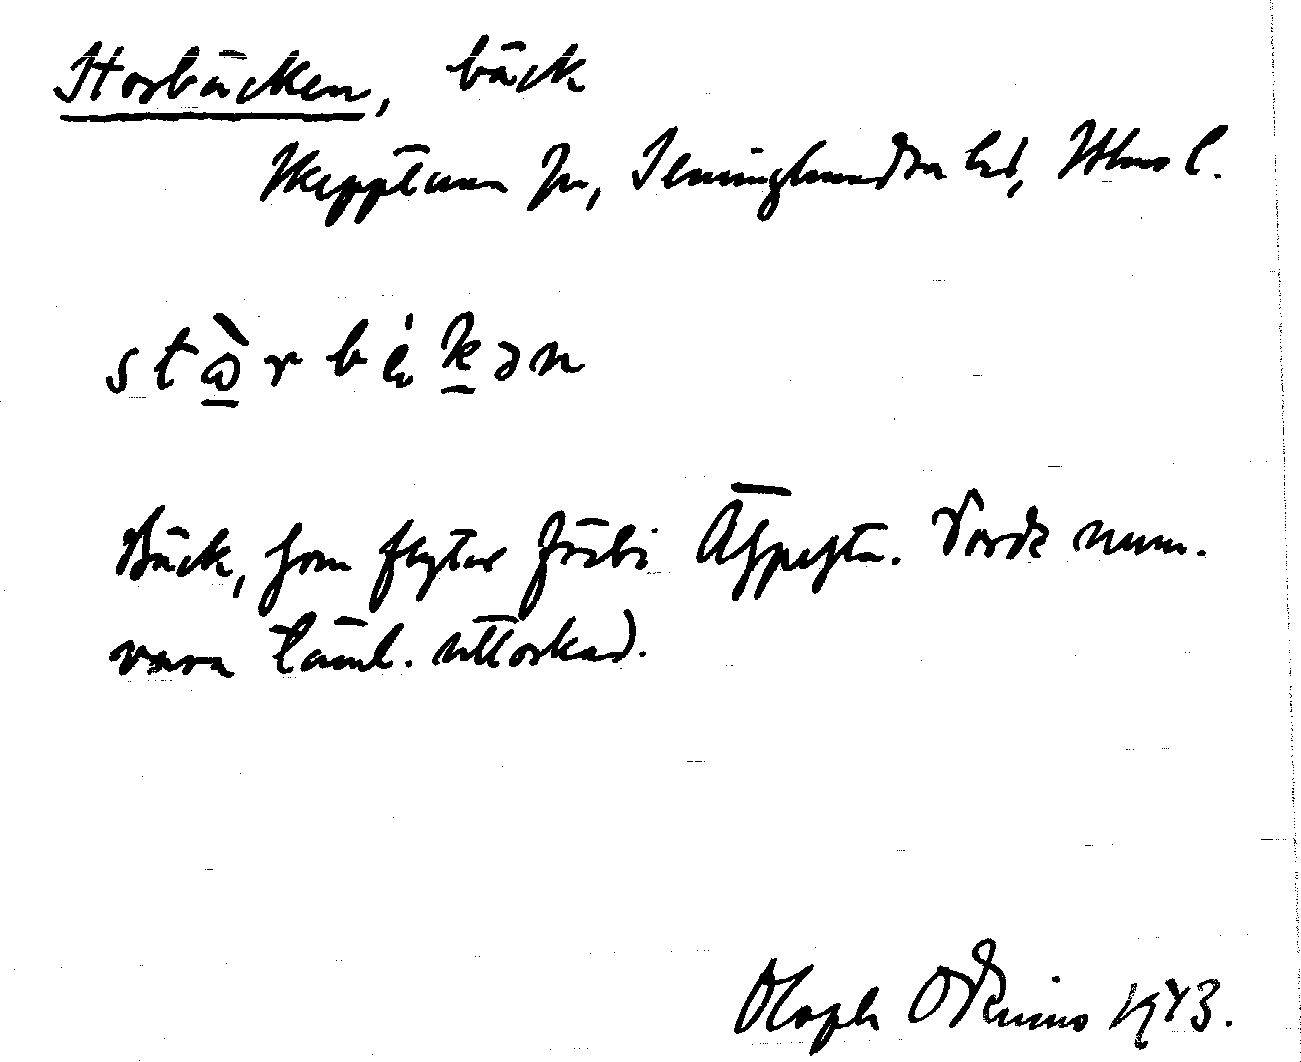 Storbäcken, bäck
Skepptuna sn, Seminghundra hd, Sthms l.
stɷ̀rbäkən
Bäck, som flyter förbi Åshusta. Torde num.
vara täml. uttorkad.
Oloph Odenius 1943.